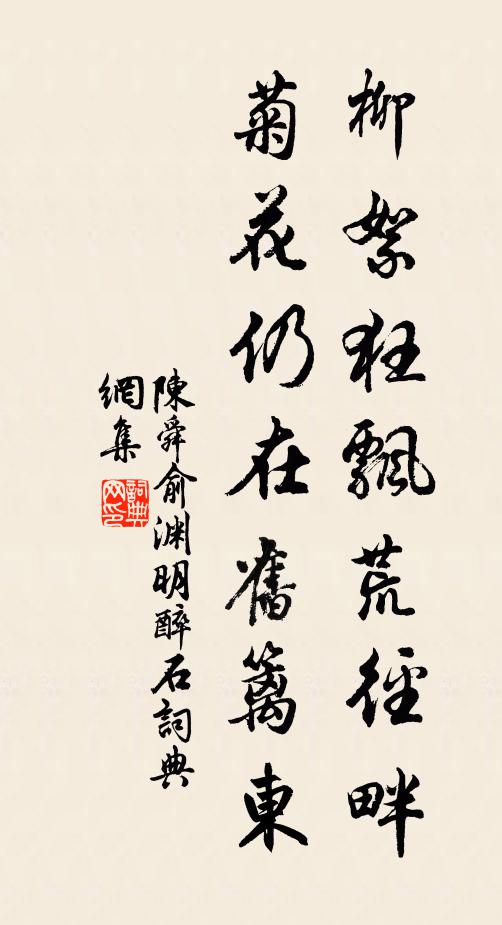 柳絮狂飄荒徑畔
菊花仍在舊籬東
陳舜俞淵明醉石詞典
網集
詞典網印